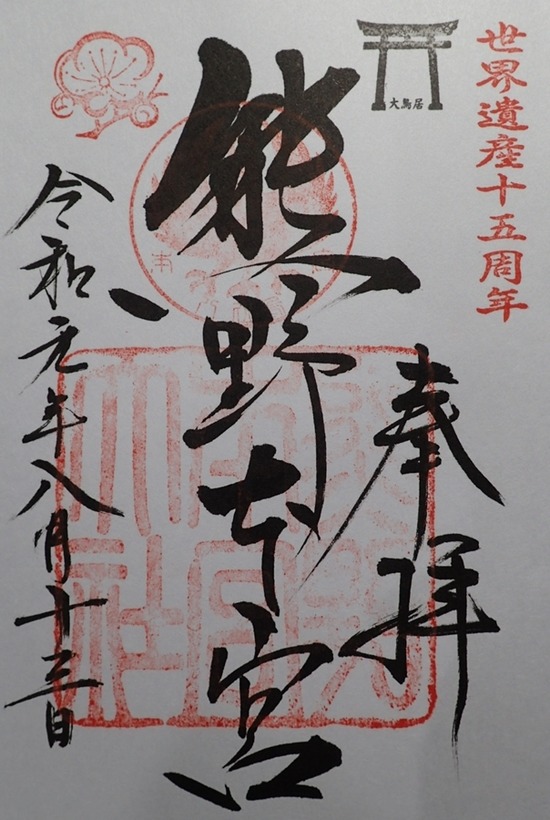 世界遺産十五周年
大鳥居
奉拝
熊野本宮
令和元年八月十三日